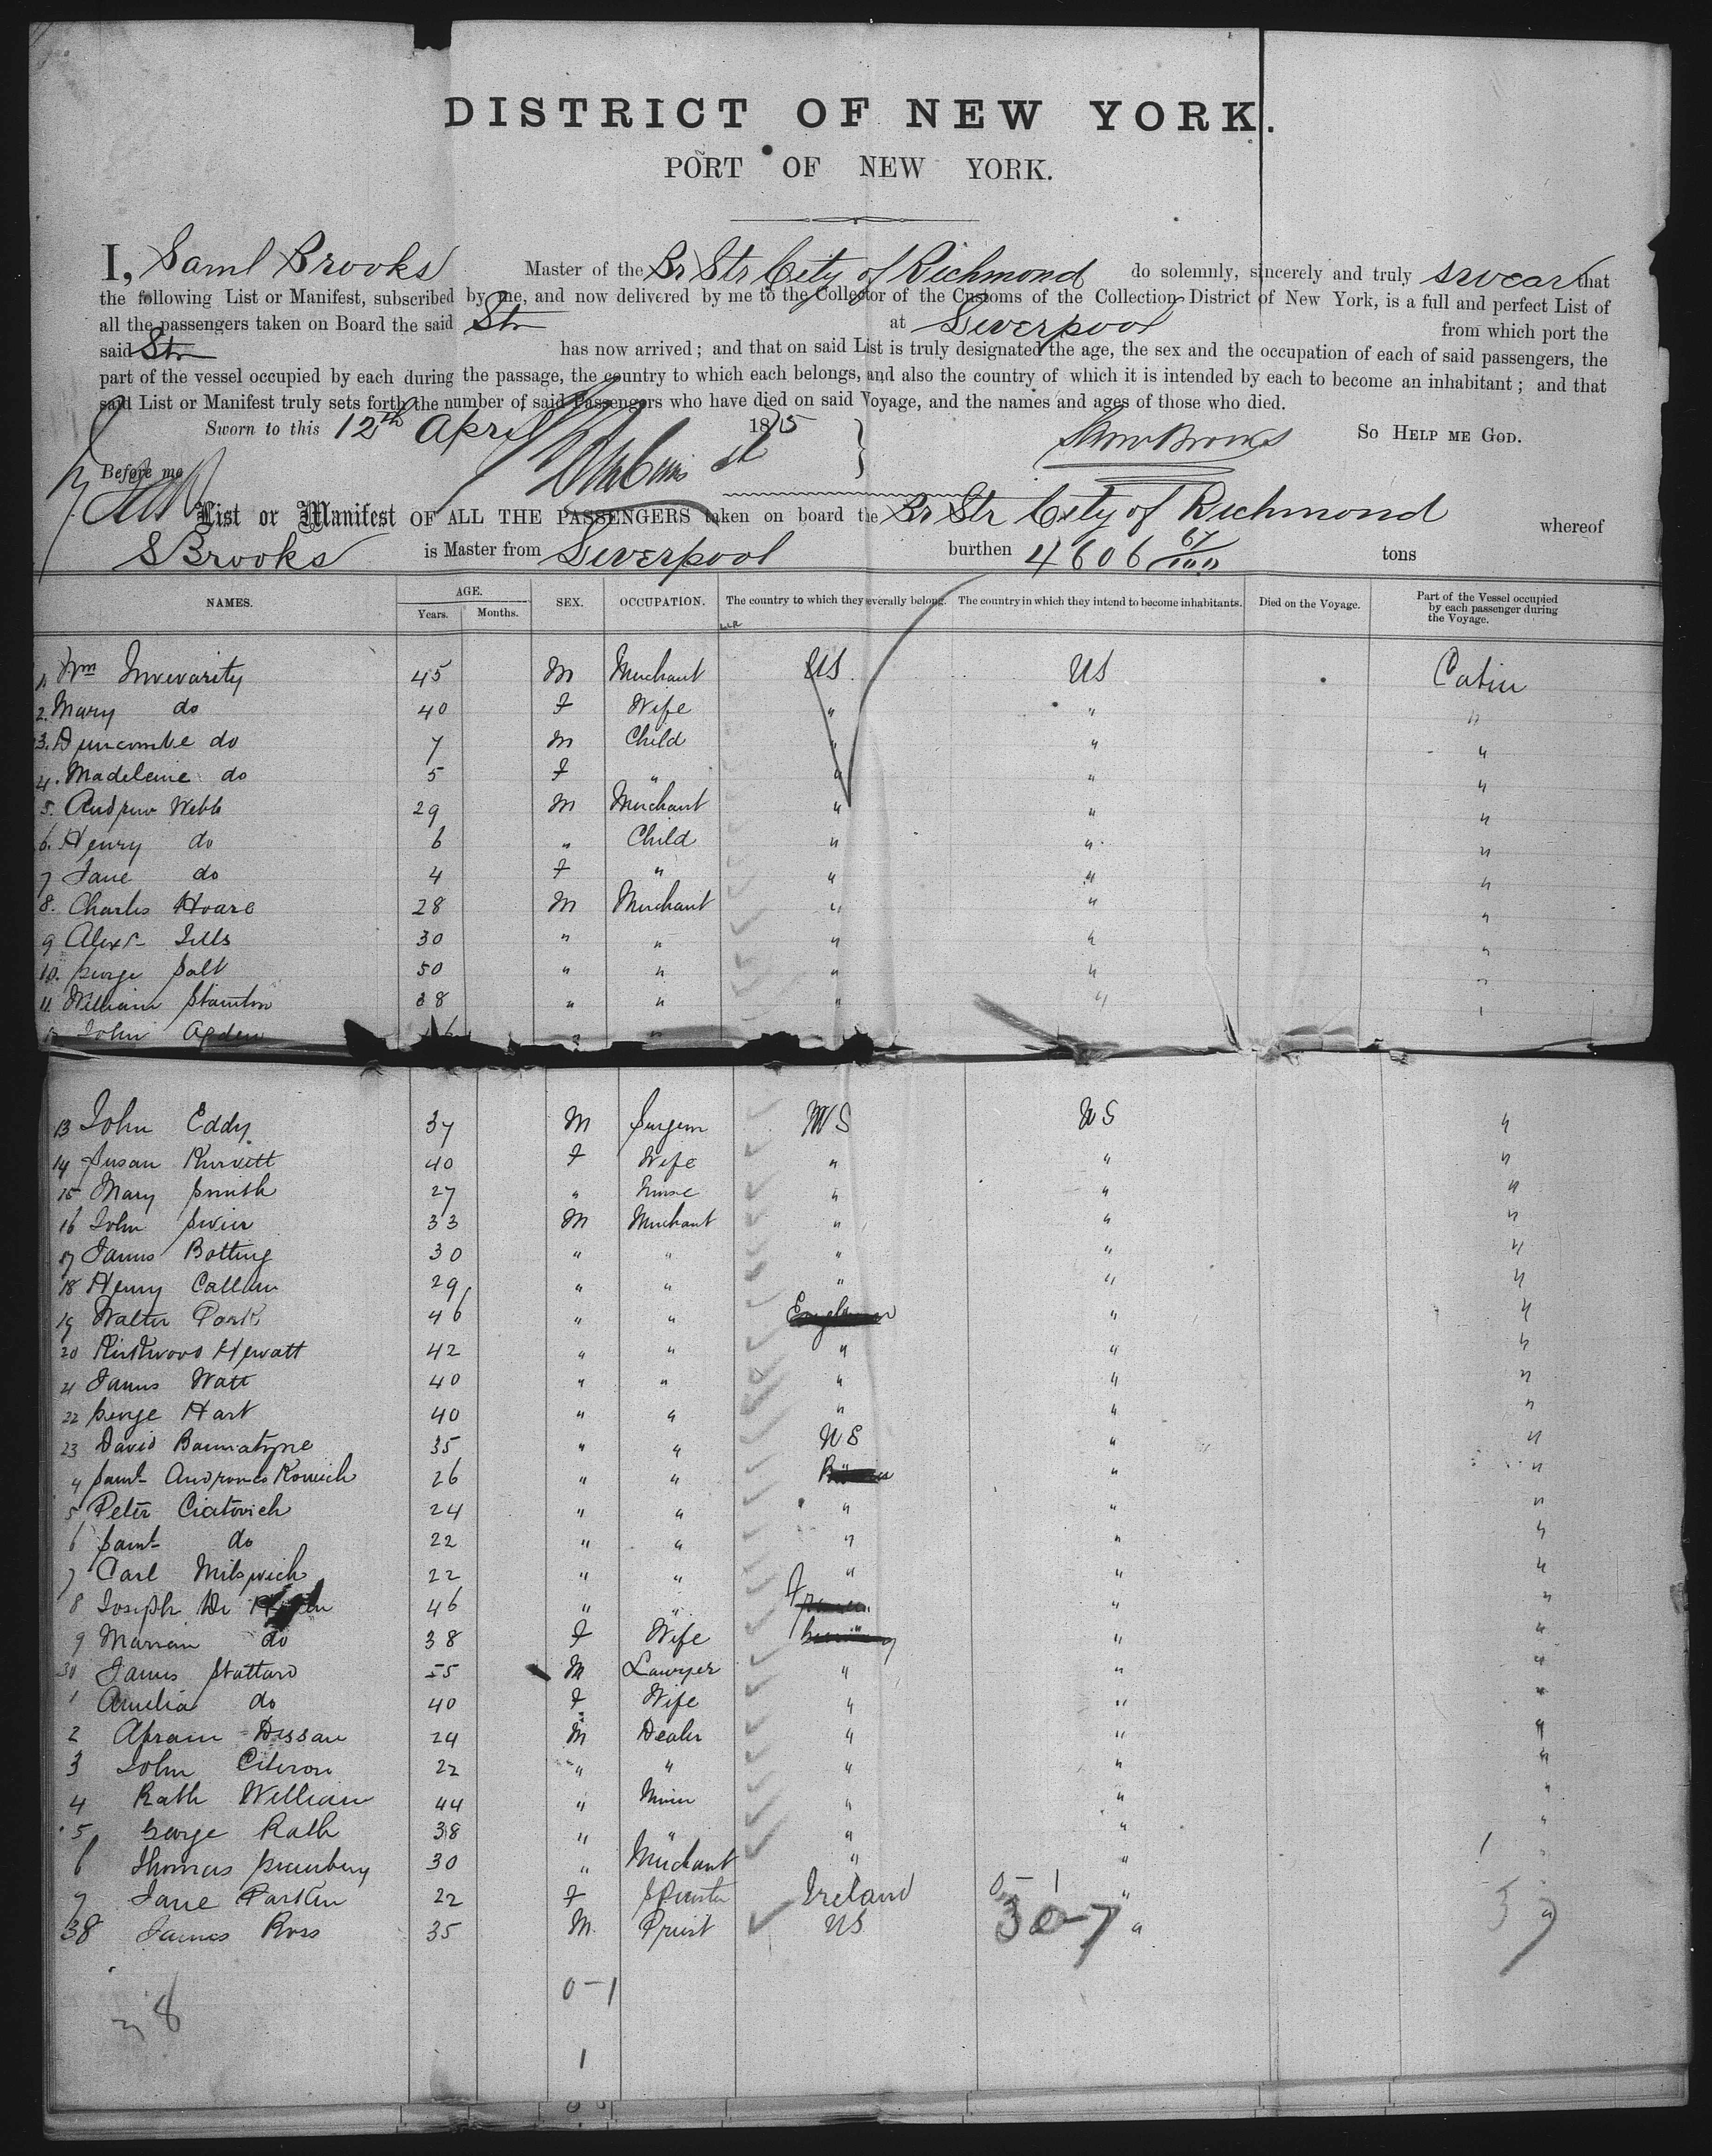 DISTRICT OF NEW YORK.
PORT OF NEW YORK.
I, Saml Brooks Master of the Br Str City of Richmond do solemnly, sincerely and truly swear that
the following List or Manifest, subscribed by me, and now delivered by me to the Collector of the Customs of the Collection District of New York, is a full and perfect List of
all the passengers taken on Board the said Str at Liverpool from which port the
said Str has now arrived; and that on said List is truly designated the age, the sex and the occupation of each of said passengers, the
part of the vessel occupied by each during the passage, the country to which each belongs, and also the country of which it is intended by each to become an inhabitant; and that
said List or Manifest truly sets forth the number of said Passengers who have died on said Voyage, and the names and ages of those who died.
Sworn to this 12th April 1875 Saml Brooks SO HELP ME GOD.
Before me
List or Manifest OF ALL THE PASSENGERS taken on board the Br Str City of Richmond whereof
S Brooks is Master from Liverpool burthen 4606 67/100 tons
NAMES. AGE. Years. Months. SEX. OCCUPATION. The country to which they severally belong. The country in which they intend to become inhabitants. Died on the Voyage. Part of the Vessel occupied by each passenger during the Voyage.
1 Wm Inverarity 45 M Merchant US US Cabin
2. Mary do 40 F Wife " " "
3. Duncombe do 7 M Child " " "
4. Madeleine do 5 F " " " "
5. Andrew Webb 29 M Merchant " " "
6. Henry do 6 " Child " " "
7 Jane do 4 F " " " "
8. Charles Hoare 28 M Merchant " " "
9 Alexr 30 " " " " "
10. George Salt 50 " " " " "
11. William Stainton 38 " " " " "
12 John Ogden " "
13 John Eddy 37 M Surgeon US US "
14 Susan 40 F Wife " " "
15 Mary Smith 27 " Nurse " " "
16 John 33 M Merchant " " "
17 James Botting 30 " " " " "
18 Henry Callum 29 " " " " "
19 Walter Park 46 " " " "
20 Kirkwood Hewatt 42 " " " " "
21 James Watt 40 " " " " "
22 George Hart 40 " " " " "
23 David Bannatyne 35 " " US " "
4 Saml 26 " " " "
5 Peter Ciatovich 24 " " " " "
6 Saml do 22 " " " " "
7 Carl 22 " " " " "
8 Joseph De 46 " " " "
9 Marian do 38 F Wife " "
30 James Stattard 55 M Lawyer " " "
1 Amelia do 40 F Wife " " "
2 Abram Dessau 24 M Dealer " " "
3 John Citeron 22 " " " " "
4 Rath William 44 " Miner " " "
5 George Rath 38 " " " " "
6 Thomas 30 " Merchant " " "
7 Jane Parkin 22 F Spinster Ireland 0-1 "
38 James Ross 35 M Priest US 30-7 " "
38
0-1
1